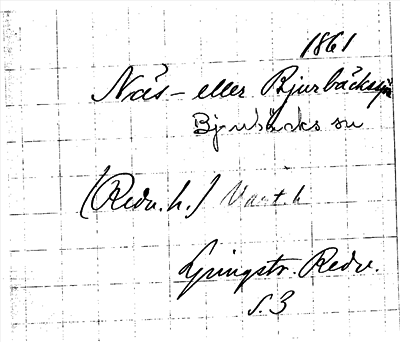 1861
Näs- eller Bjurbäcksjö
Bjurbäcks sn
(Redv. h.) Vart. h
Ljungstr. Redv.
s. 3